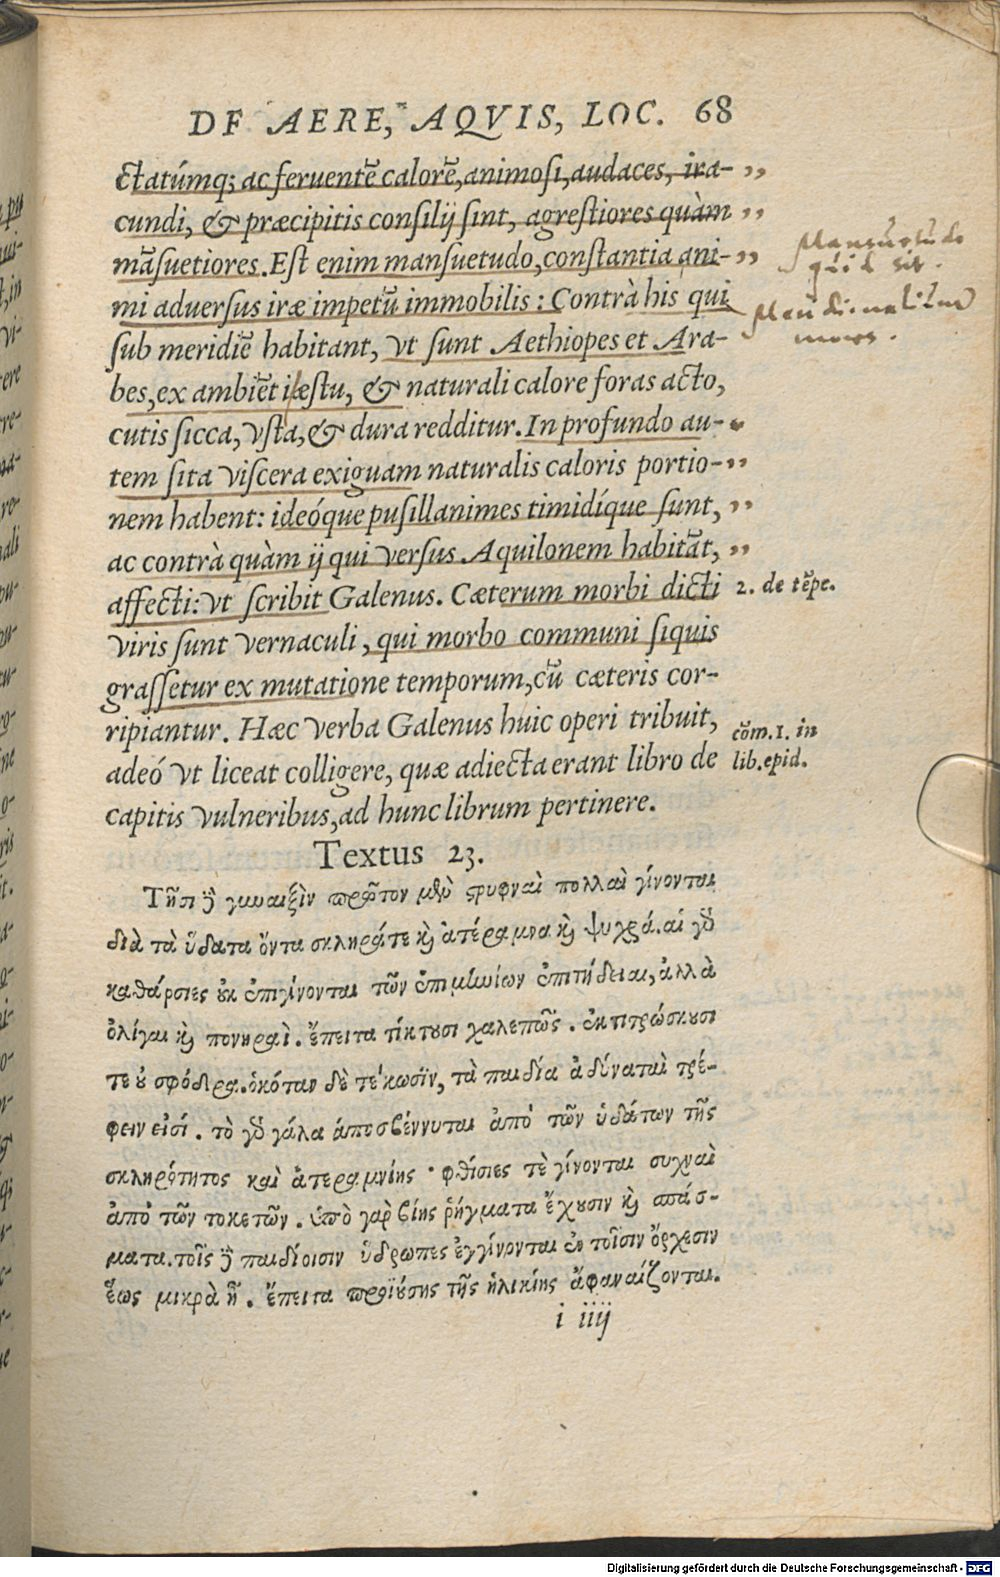 DE AERE, AQVIS, LOC. 68
ctatúmq; ac feruentē calorē, animosi, audaces, ira- ,,
cundi, & præcipitis consilij sint, agrestiores quàm ,,
māsuetiores. Est enim mansuetudo, constantia ani- ,,
Mansuetudo
quid sit.
mi aduersus iræ impetū immobilis: Contrà his qui
Meridionalium
mores.
sub meridiē habitant, vt sunt Aethiopes et Ara-
bes, ex ambiēti æstu, & naturali calore foras acto,
cutis sicca, vsta, & dura redditur. In profundo au- ,,
tem sita viscera exiguam naturalis caloris portio- ,,
nem habent: ideóque pusillanimes timidíque sunt, ,,
ac contrà quàm ij qui versus Aquilonem habitāt, ,,
affecti: vt scribit Galenus. Cæterum morbi dicti
2. de tēpe.
viris sunt vernaculi, qui morbo communi siquis
grassetur ex mutatione temporum, cū cæteris cor-
ripiantur. Hæc verba Galenus huic operi tribuit,
cōm. 1. in
adeó vt liceat colligere, quæ adiecta erant libro de
lib. epid.
capitis vulneribus, ad hunc librum pertinere.
Textus 23.
Τῆσι δὲ γυναιξὶν πρῶτον μὲν στρυφναὶ πολλαὶ γίνονται
διὰ τὰ ὕδατα ὄντα σκληρά τε καὶ ἀτέραμνα καὶ ψυχρά. αἱ γὰρ
καθάρσιες οὐκ ἐπιγίνονται τῶν ἐπιμηνίων ἐπιτήδειαι, ἀλλὰ
ὀλίγαι καὶ πονηραὶ. ἔπειτα τίκτουσι χαλεπῶς. ἐκτιτρώσκουσι
τε οὐ σφόδρα. ὁκόταν δὲ τέκωσϊν, τὰ παιδία ἀδύναται τρέ-
φειν εἰσί. τὸ γὰρ γάλα ἀποσβέννυται ἀπὸ τῶν ὑδάτων τῆς
σκληρότητος καὶ ἀτεραμνίης· φθίσιες τὲ γίνονται συχναὶ
ἀπὸ τῶν τοκετῶν. ὑπὸ γὰρ βίης ῥήγματα ἔχουσιν καὶ σπάσ-
ματα. τοῖς δὲ παιδίοισιν ὑδρωπες ἐγγίνονται ἐν τοῖσιν ὄρχεσιν
ἕως μικρὰ ᾖ. ἔπειτα προϊούσης τῆς ἡλικίης ἀφαναίζονται.
i iiij
Digitalisierung gefördert durch die Deutsche Forschungsgemeinschaft - DFG